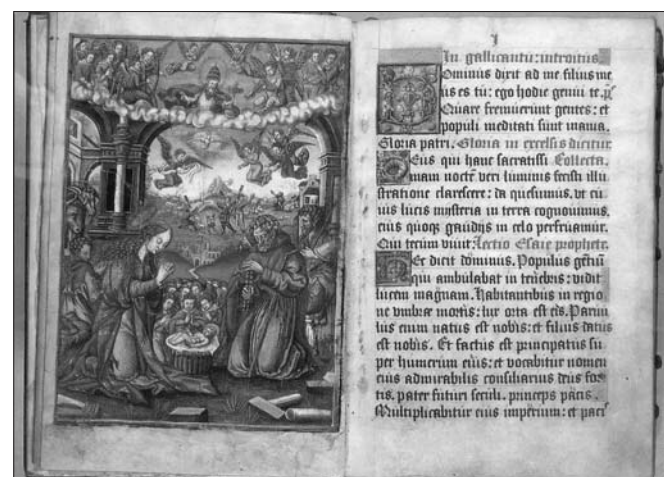 I
In gallicantu: introitus.
Ominus dixit ad me filius me
us es tu: ego hodie genui te. ps
Quare fremuerunt gentes: et
populi meditati sunt inania.
Gloria patri. Gloria in excelsis dicitur.
Eus qui hanc sacratissi Collecta.
mam noctē veri luminis fecisti illu
stratione clarescere: da quesumus. ut cu
ius lucis mysteria in terra cognouimus.
eius quoqz gaudijs in celo perfruamur.
Qui tecum viuit: Lectio Esaie prophete.
Ec dicit dominus. Populus gētiū
qui ambulabat in tenebris: vidit
lucem magnam. Habitantibus in regio
ne umbrae mortis: lux orta est eis. Paruu
lus enim natus est nobis: et filius datus
est nobis. Et factus est principatus su
per humerum eius: et vocabitur nomen
eius admirabilis consiliarius deus for
tis. pater futuri seculi. princeps pacis.
Multiplicabitur eius imperium: et paci